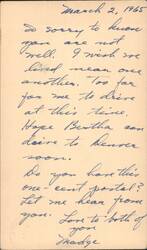 March 2, 1965
So sorry to know
you are not
well. I wish we
lived near one
another. Too far
for me to drive
at this time.
Hope Bertha can
drive to Denver
soon.
Do you have this
one-cent postal?
Let me hear from
you. Love to both of
you
Madge